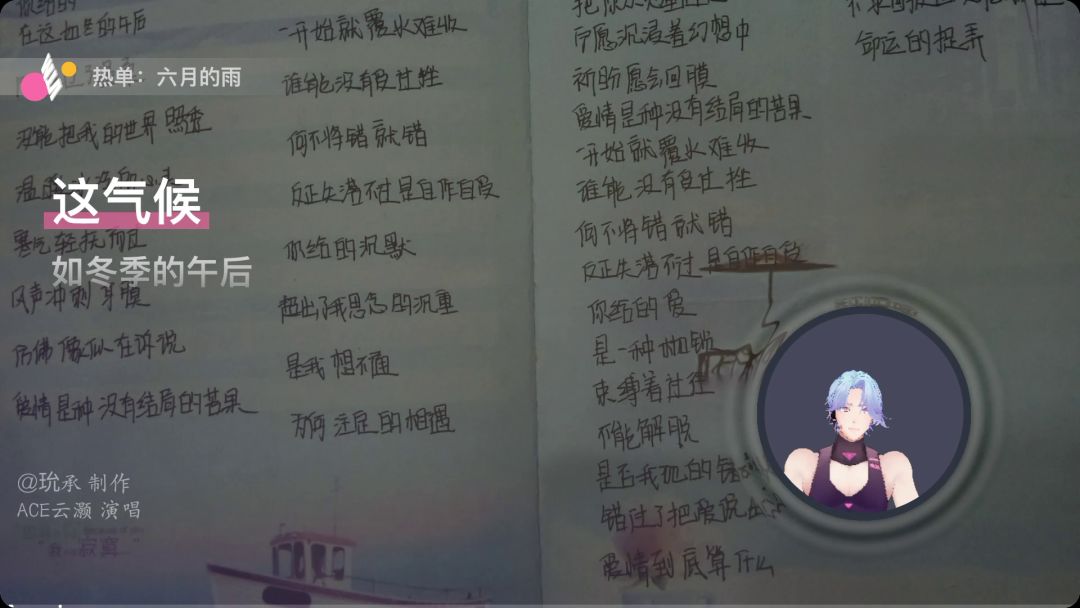 你给的
在这如冬的午后
热单：六月的雨
没能把我的世界照亮
这气候
寒气轻抚而且
如冬季的午后
风声冲刺耳膜
仿佛像似在诉说
爱情是种没有结局的苦果
@玧承 制作
ACE云灏 演唱
寂寞
一开始就覆水难收
谁能没有负过性
何不将错就错
反正失落不过是自作自受
你给的沉默
超出了我思念的沉重
是我想不通
为何注定的相遇
所愿沉浸着幻想中
祈盼愿会回膜
爱情是种没有结局的苦果
一开始就覆水难收
谁能没有负过性
何不将错就错
反正失落不过是自作自受
你给的爱
是一种枷锁
束缚着过往
不能解脱
是否我犯的错
错过了把爱说出
爱情到底算什么
命运的捉弄